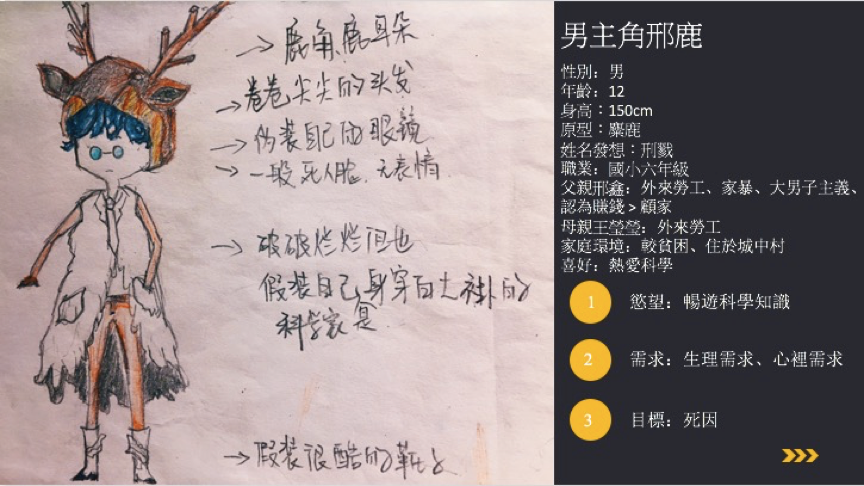 鹿角、鹿耳朵
卷卷尖尖的头发
伪装自己的眼镜
一般死人脸、无表情
破破烂烂但也
假装自己身穿白大褂的
科学家
假装很酷的靴子
男主角邢鹿
性別：男
年齡：12
身高：150cm
原型：麋鹿
姓名發想：刑戮
職業：國小六年級
父親邢鑫：外來勞工、家暴、大男子主義、
認為賺錢 > 顧家
母親王瑩瑩：外來勞工
家庭環境：較貧困、住於城中村
喜好：熱愛科學
1 慾望：暢遊科學知識
2 需求：生理需求、心裡需求
3 目標：死因